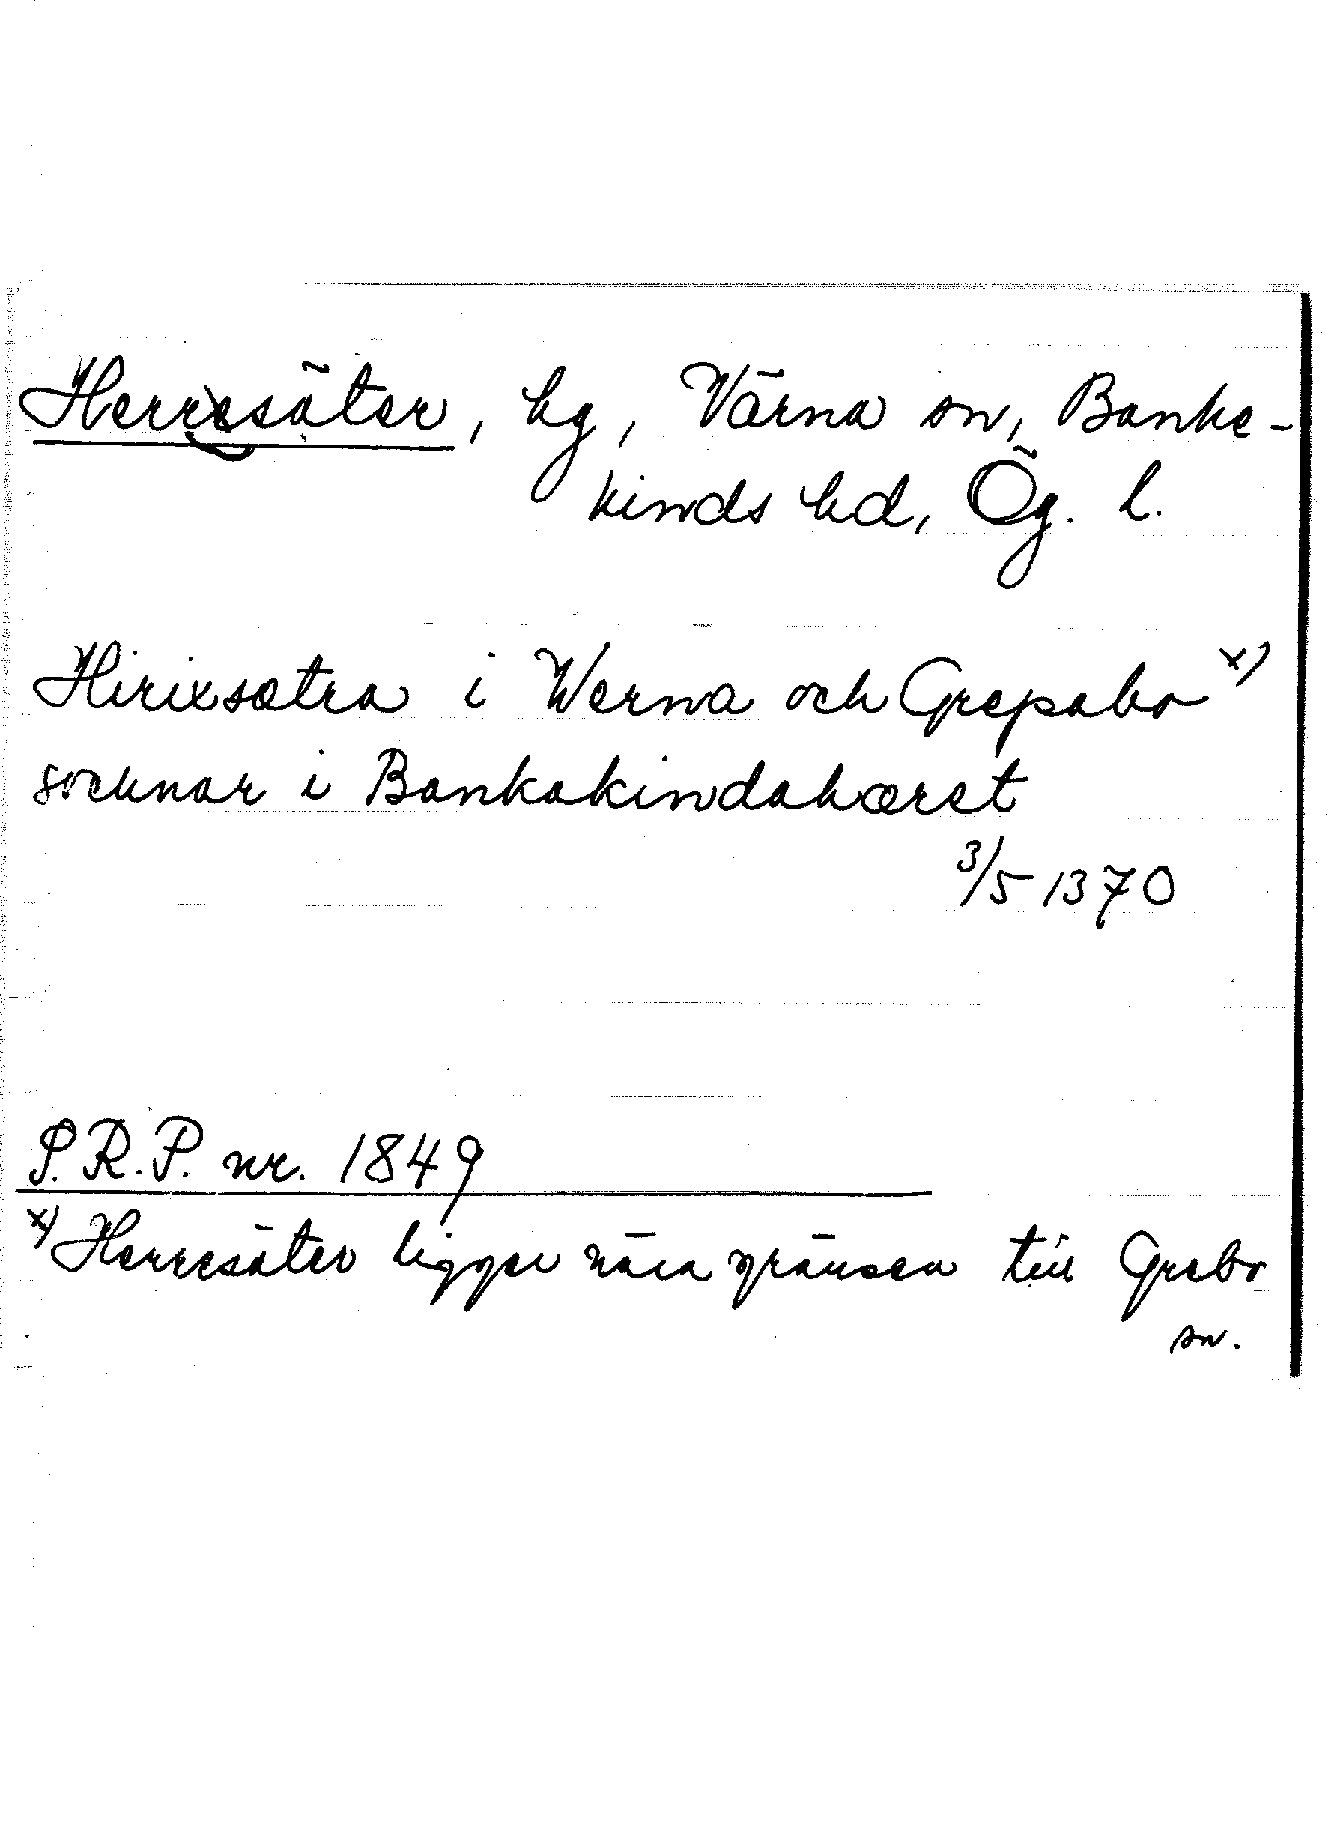 Herresäter, hg, Värna sn, Banke-
kinds hd, Ög. l.
Hirixsætra i Werna och Grepabo x)
socknar i Bankakindahæret
3/5 1370
S.R.P. nr. 1849
x) Herresäter ligger nära gränsen till Grebo
sn.